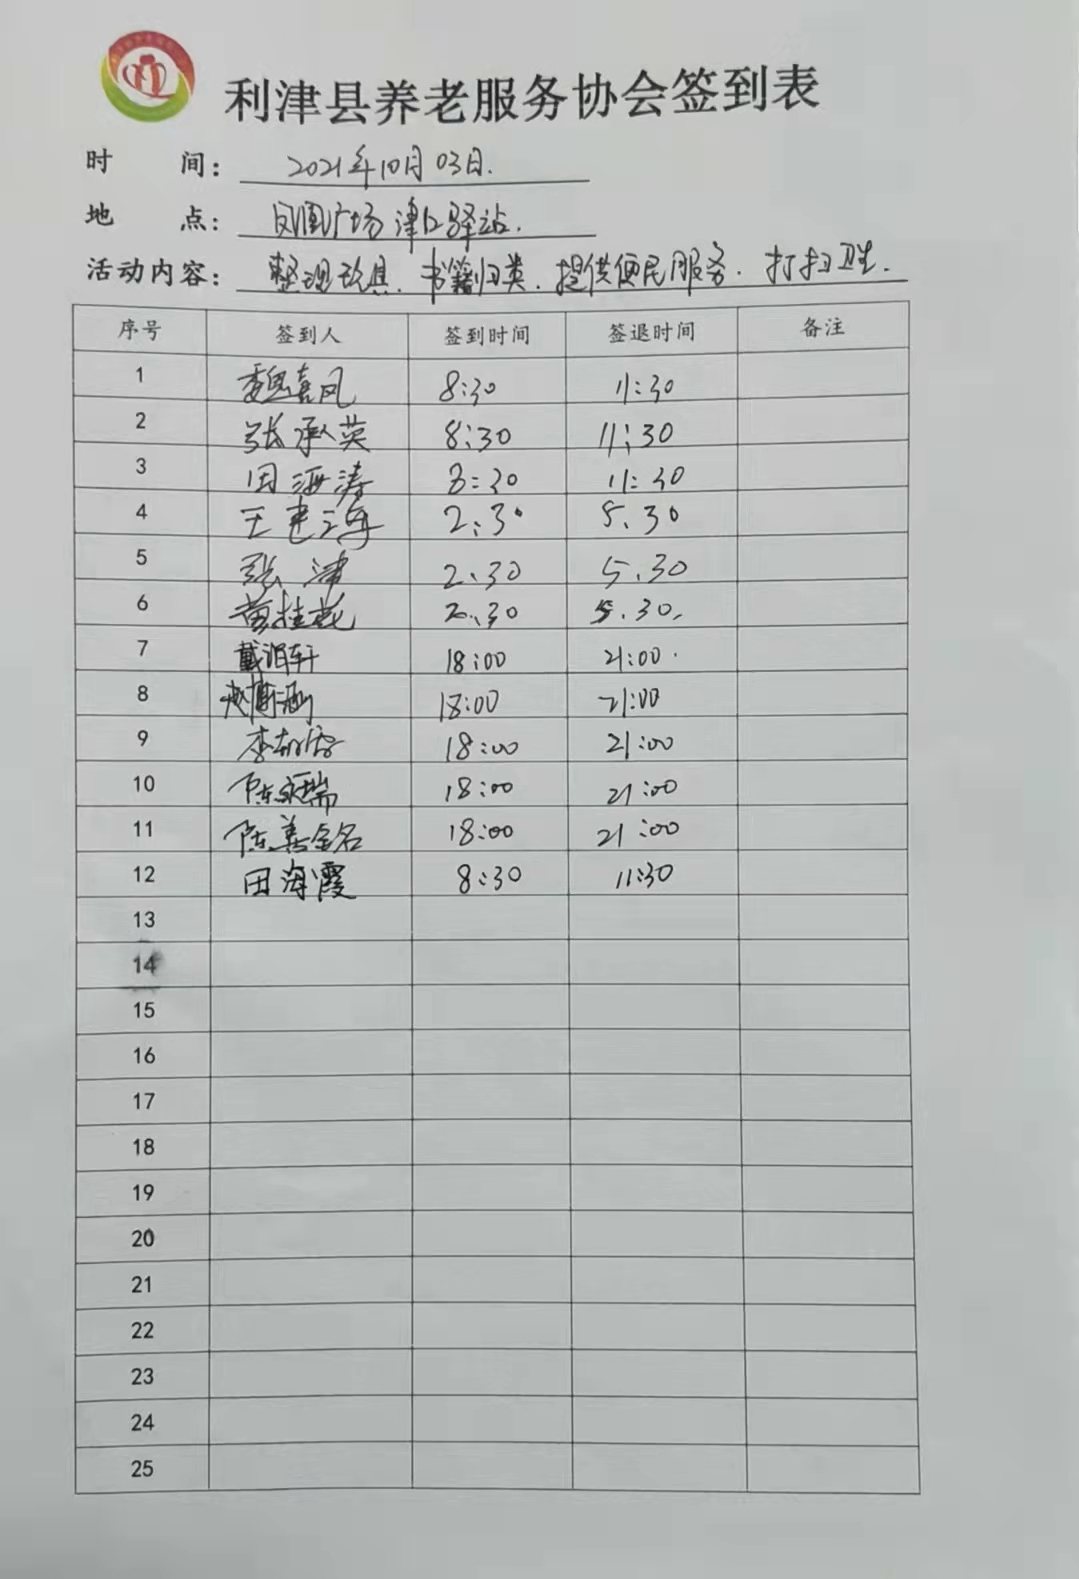 利津县养老服务协会签到表
时 间: 2021年10月03日.
地 点: 凤凰广场 津口驿站.
活动内容: 整理玩具. 书籍归类. 提供便民服务. 打扫卫生.
序号 签到人 签到时间 签退时间 备注
1 魏喜凤 8:30 11:30
2 张承英 8:30 11:30
3 田海涛 8:30 11:30
4 2:30 5.30
5 张津 2.30 5.30
6 黄桂花 2.30 5.30.
7 18:00 21:00.
8 赵博涵 18:00 21:00
9 18:00 21:00
10 18:00 21:00
11 陈善铭 18:00 21:00
12 田海霞 8:30 11:30
13
14
15
16
17
18
19
20
21
22
23
24
25